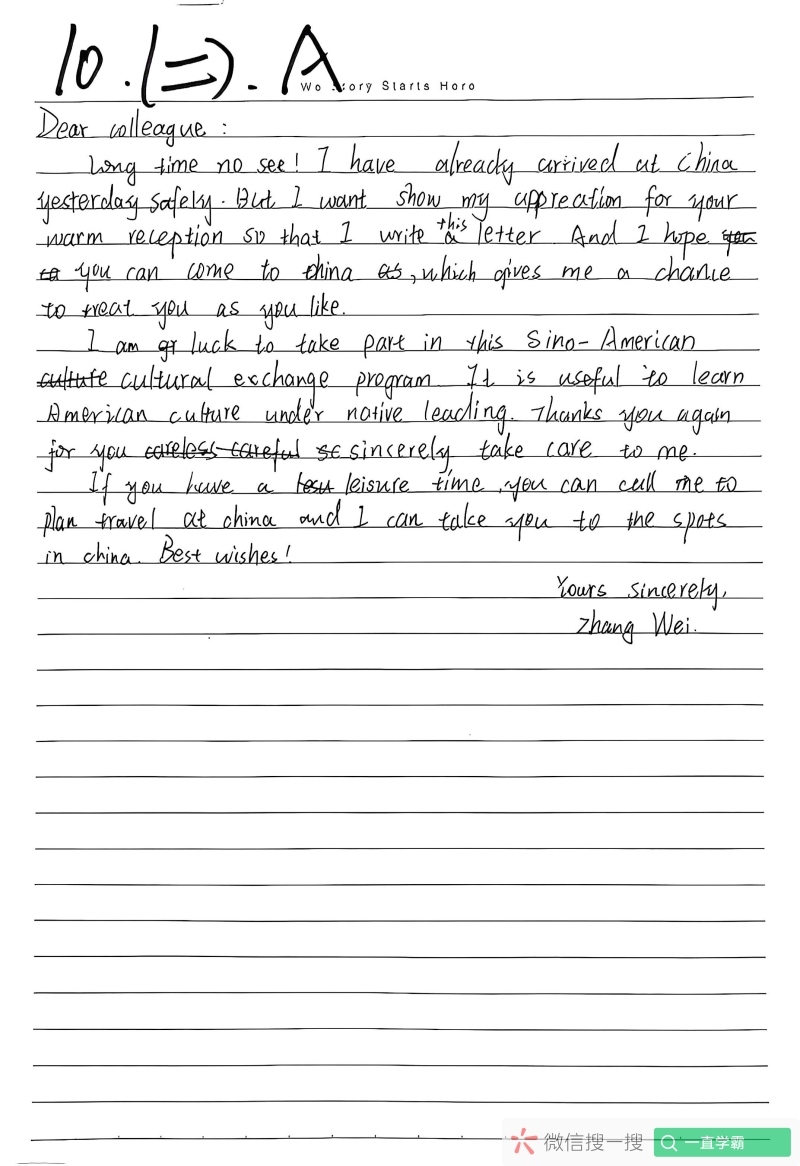 10.(二). A
Wo ory Starts Hero
Dear colleague :
Long time no see! I have already arrived at China
yesterday safely. But I want show my appreation for your
warm reception so that I write this letter. And I hope
you can come to China, which gives me a chance
to treat you as you like.
I am luck to take part in this Sino-American
cultural exchange program. It is useful to learn
American culture under native leading. Thanks you again
for you sincerely take care to me.
If you have a leisure time, you can call me to
plan travel at china and I can take you to the spots
in china. Best wishes!
Yours sincerely,
Zhang Wei.
微信搜一搜
一直学霸